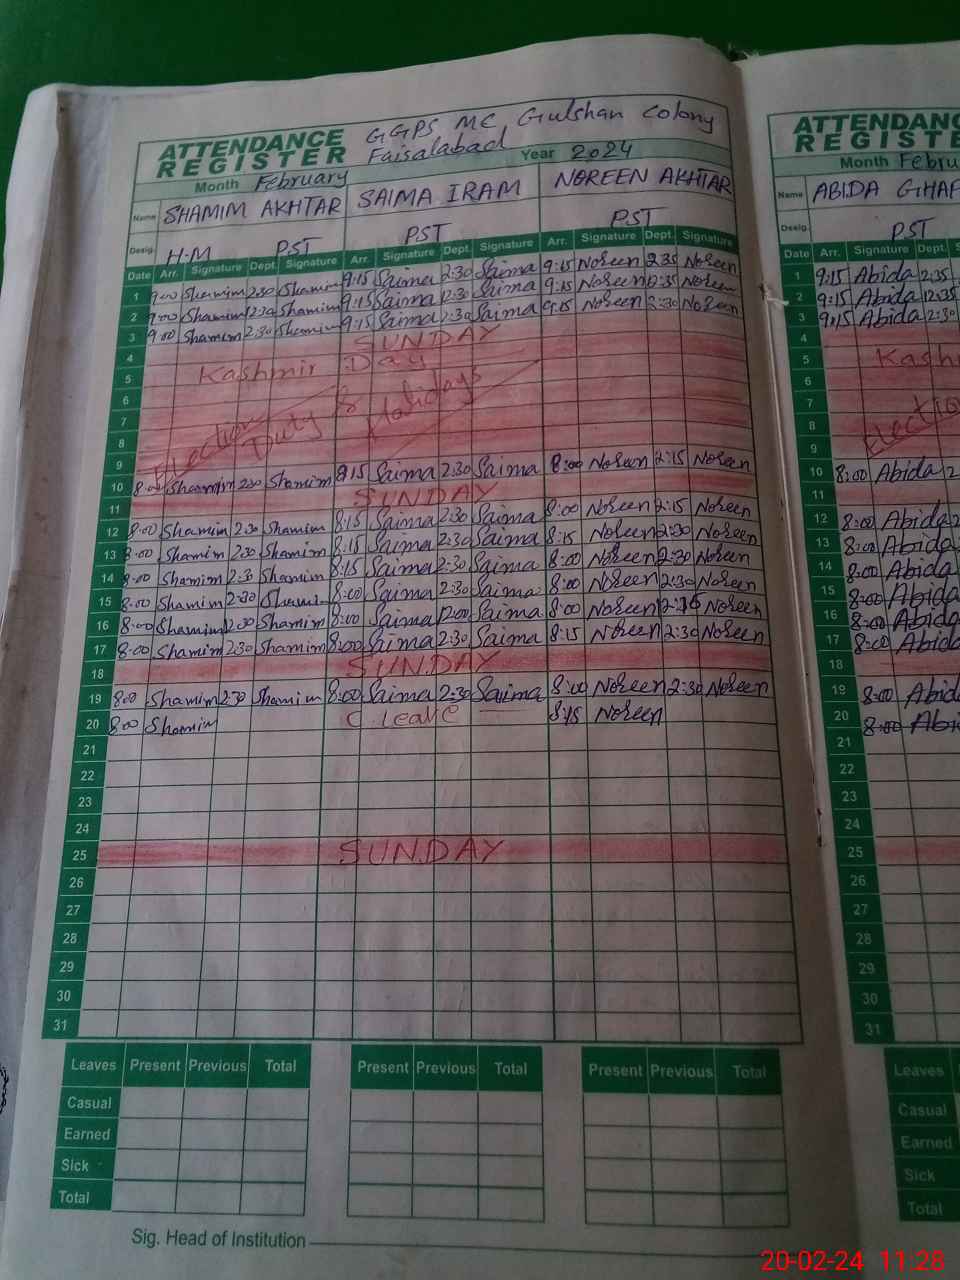 ATTENDANCE REGISTER GGPS MC Gulshan Colony
Faisalabad
Month February Year 2024
Name SHAMIM AKHTAR SAIMA IRAM NOREEN AKHTAR
Desig. H.M PST PST PST
Date Arr. Signature Dept. Signature Arr. Signature Dept. Signature Arr. Signature Dept. Signature
1 9:00 Shamim 2:30 Shamim 9:15 Saima 2:30 Saima 9:15 Noreen 2:35 Noreen
2 9:00 Shamim 12:30 Shamim 9:15 Saima 12:30 Saima 9:15 Noreen 12:35 Noreen
3 9:00 Shamim 2:30 Shamim 9:15 Saima 2:30 Saima 9:15 Noreen 2:30 Noreen
4 SUNDAY
5 Kashmir Day
6
7 Election Duty & Holidays
8
9
10 8:00 Shamim 2:30 Shamim 8:15 Saima 2:30 Saima 8:00 Noreen 2:15 Noreen
11 SUNDAY
12 8:00 Shamim 2:30 Shamim 8:15 Saima 2:30 Saima 8:00 Noreen 2:15 Noreen
13 8:00 Shamim 2:30 Shamim 8:15 Saima 2:30 Saima 8:15 Noreen 2:30 Noreen
14 8:00 Shamim 2:30 Shamim 8:15 Saima 2:30 Saima 8:00 Noreen 2:30 Noreen
15 8:00 Shamim 2:30 Shamim 8:00 Saima 2:30 Saima 8:00 Noreen 2:30 Noreen
16 8:00 Shamim 12:30 Shamim 8:00 Saima 12:00 Saima 8:00 Noreen Noreen
17 8:00 Shamim 2:30 Shamim 8:00 Saima 2:30 Saima 8:15 Noreen 2:30 Noreen
18 SUNDAY
19 8:00 Shamim 2:30 Shamim 8:00 Saima 2:30 Saima 8:00 Noreen 2:30 Noreen
20 8:00 Shamim C. leave 8:15 Noreen
21
22
23
24
25 SUNDAY
26
27
28
29
30
31
Leaves Present Previous Total Present Previous Total Present Previous Total
Casual
Earned
Sick
Total
Sig. Head of Institution
ATTENDANC
REGISTE
Month Febru
Name ABIDA GHAF
Desig. PST
Date Arr. Signature Dept. S
1 9:15 Abida 2:35
2 9:15 Abida 12:35
3 9:15 Abida 2:30
4
5 Kash
6
7
8 Electio
9
10 8:00 Abida
11
12 8:00 Abida
13 8:00 Abida
14 8:00 Abida
15 8:00 Abida
16 8:00 Abida
17 8:00 Abida
18
19 8:00 Abid
20 8:00 Abi
21
22
23
24
25
26
27
28
29
30
31
Leaves Present
Casual
Earned
Sick
Total
20-02-24 11:28